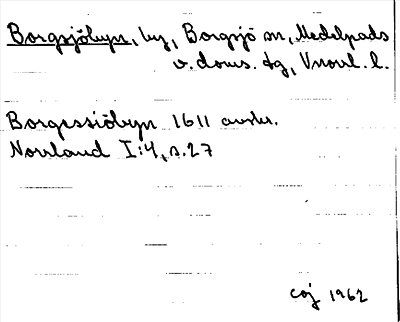 Borgsjöbyn, by, Borgsjö sn, Medelpads
v. doms. tg, Vnorrl. l.
Borgessiöbyn 1611 avskr.
Norrland I:4, s. 27
coj 1962